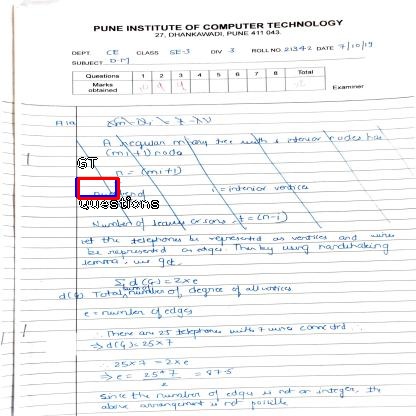 PUNE INSTITUTE OF COMPUTER TECHNOLOGY
27, DHANKAWADI, PUNE 411 043.
DEPT. CE CLASS SE-3 DIV 3 ROLL NO. 21342 DATE 7/10/19
SUBJECT D.M
Questions 1 2 3 4 5 6 7 8 Total
Marks obtained
Examiner
A regular m-ary tree with i interior nodes has
(mi+1) node
GT
n = (mi+1)
i = interior vertices
Questions
Number of leaves t = (n-i)
let the telephones be represented as vertices and wires
be represented as edges. Then by using handshaking
lemma, we get.
Σ d(G) = 2xe
d(G) Total number of degree of all vertices.
e = number of edges
There are 25 telephones with 7 wires connected
⇒ d(G) = 25x7
25x7 = 2xe
⇒ e = 25*7 / 2 = 87.5
Since the number of edges is not an integer, the
above arrangement is not possible